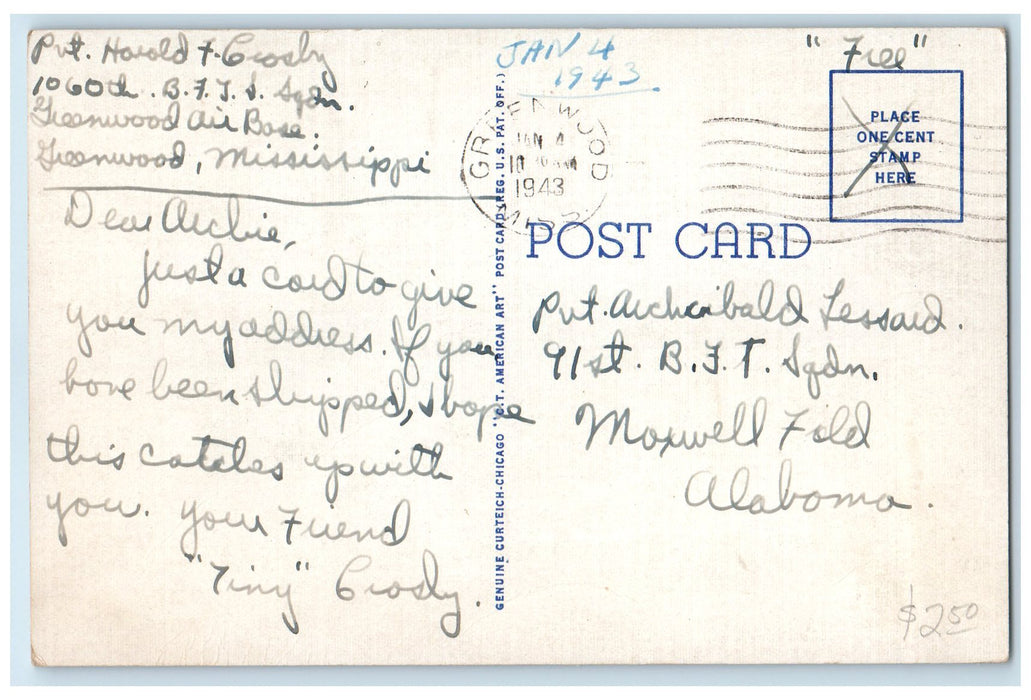 Pvt. Harold F. Crosby
1060th. B.F.T.S. Sqdn.
Greenwood Air Base.
Greenwood, Mississippi
Dear Archie,
Just a card to give
you my address. If you
have been shipped, I hope
this catches up with
you. Your Friend
"Tiny" Crosby.
GENUINE CURTEICH-CHICAGO "C.T. AMERICAN ART" POST CARD (REG. U.S. PAT. OFF.)
JAN 4
1943
GREENWOOD
JAN 4
1943
MISS
"Free"
PLACE
ONE CENT
STAMP
HERE
POST CARD
Pvt. Archibald Lessard.
91st. B.F.T. Sqdn.
Maxwell Field
Alabama.
$2.50